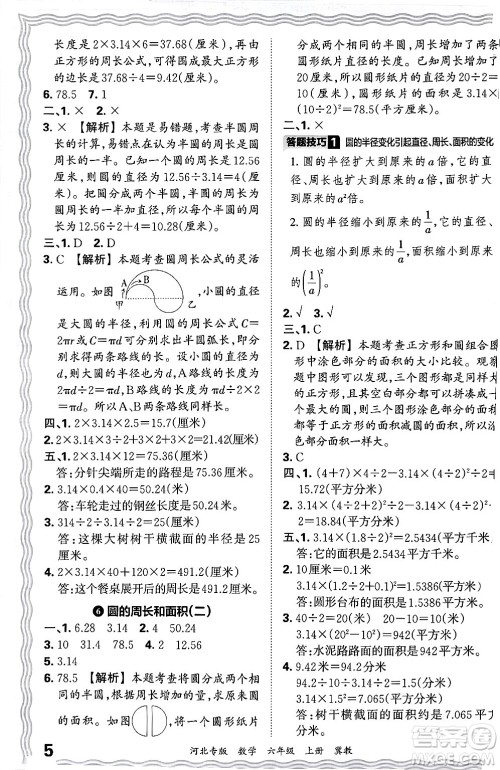 长度是2×3.14×6=37.68(厘米)，再由正
方形的周长公式，可得围成最大正方
形的边长是37.68÷4=9.42(厘米)。
6. 78.5　7. 1
二、1. ×　2. ×
3. ×　【解析】本题是易错题，考查半圆周长
的计算，易错点在认为半圆的周长是
圆周长的一半。根据周长是12.56
厘米，则圆的直径为12.56÷3.14=
4(厘米)，半圆的周长是半个圆的
圆周长与一条直径的和，即12.56
÷2+4=10.28(厘米)。
三、1. D　2. D
3. C　【解析】本题考查圆周长公式的灵活
运用。如图
A
B
甲
乙
，小圆的直径
是大圆的半径，利用圆的周长公式C=2
πr或C=πd可分别求出半圆弧长，从而
求出两条路线的长。设小圆的直径是d，
则大圆的直径是2d，路线A长为π×2d
÷2=πd，路线B长为πd÷2+πd÷
2=πd。所以A、B两条路线同样长。
四、1. 2×3.14×2.5=15.7(厘米)
2. 2×3.14×3÷2+3×2=3×4=21.42(厘米)
五、1. 2×3.14×12=75.36(厘米)
答：分针尖端所走的路程是75.36厘米。
2. 3.14×0.4×40=50.24(米)
答：车轮走过的钢丝长度是50.24米。
3. 314÷2÷3.14÷2=25(厘米)
答：这棵大树树干横截面的半径是25
厘米。
4. 2×3.14×40+120×2=491.2(厘米)
答：这个餐桌展开后的周长是491.2厘米。
6 圆的周长和面积(二)
一、1. 6.28　3.14　2. 4　50.24
3. 10　31.4　78.5　4. 9.12
5. 3.14
6. 78.5　【解析】本题考查将一个圆分成两个
相同的半圆，周长增加多少的实际问
题，根据
，将一个圆形纸片
分成两个相同的半圆，周长增加了两条
圆形纸片的直径，已知周长增加了20厘
米，所以圆形纸片的直径为20÷2=10
(厘米)，圆形纸片的面积是3.14×
(10÷2)²=78.5(平方厘米)。
二、1. ×
答题技巧1　圆的半径变化引起直径、周长、面积的变化
1. 圆的半径扩大到原来的a倍，它的直
径与周长也扩大到原来的a倍，面积扩
大到原来的a²倍。
2. 圆的半径缩小到原来的1/a，它的直径与
周长也缩小到原来的1/a，面积缩小到原来
的(1/a)²。
2. √　3. √
三、1. C
2. D　【解析】本题考查正方形和圆组合图
形中涂色部分的面积的大小比较。观察
题图可知，四个图形都是大小一样
的正方形，空白部分都可以拼凑成一
个最大的圆，四个图形中涂色部分面积
都等于正方形的面积减圆的面积，所以
涂色部分面积一样大。
四、1. (4+7)×4÷2-3.14×4²÷2=
15.72(平方分米)
2. 3.14×(4÷2+2)²÷2-3.14×(4÷2)²÷
2=18.84(平方分米)
五、1. 3.14×(1.8÷2)²=2.5434(平方米)
答：它的面积是2.5434平方米。
2. 10厘米=0.1米
3.14×(1.2÷2+0.1)²=1.5386(平方米)
答：圆形台布的面积是1.5386平方米。
3. 40÷2=20(米)
3.14×(20²-10²)=942(平方米)
答：水泥路路面的面积是942平方米。
4. 9.42米=94.2分米
94.2÷10÷3.14÷2=1.5(分米)
3.14×1.5²=7.065(平方分米)
答：树干横截面的面积是7.065平方
分米。
5　河北专版　数学　六年级　上册　冀教